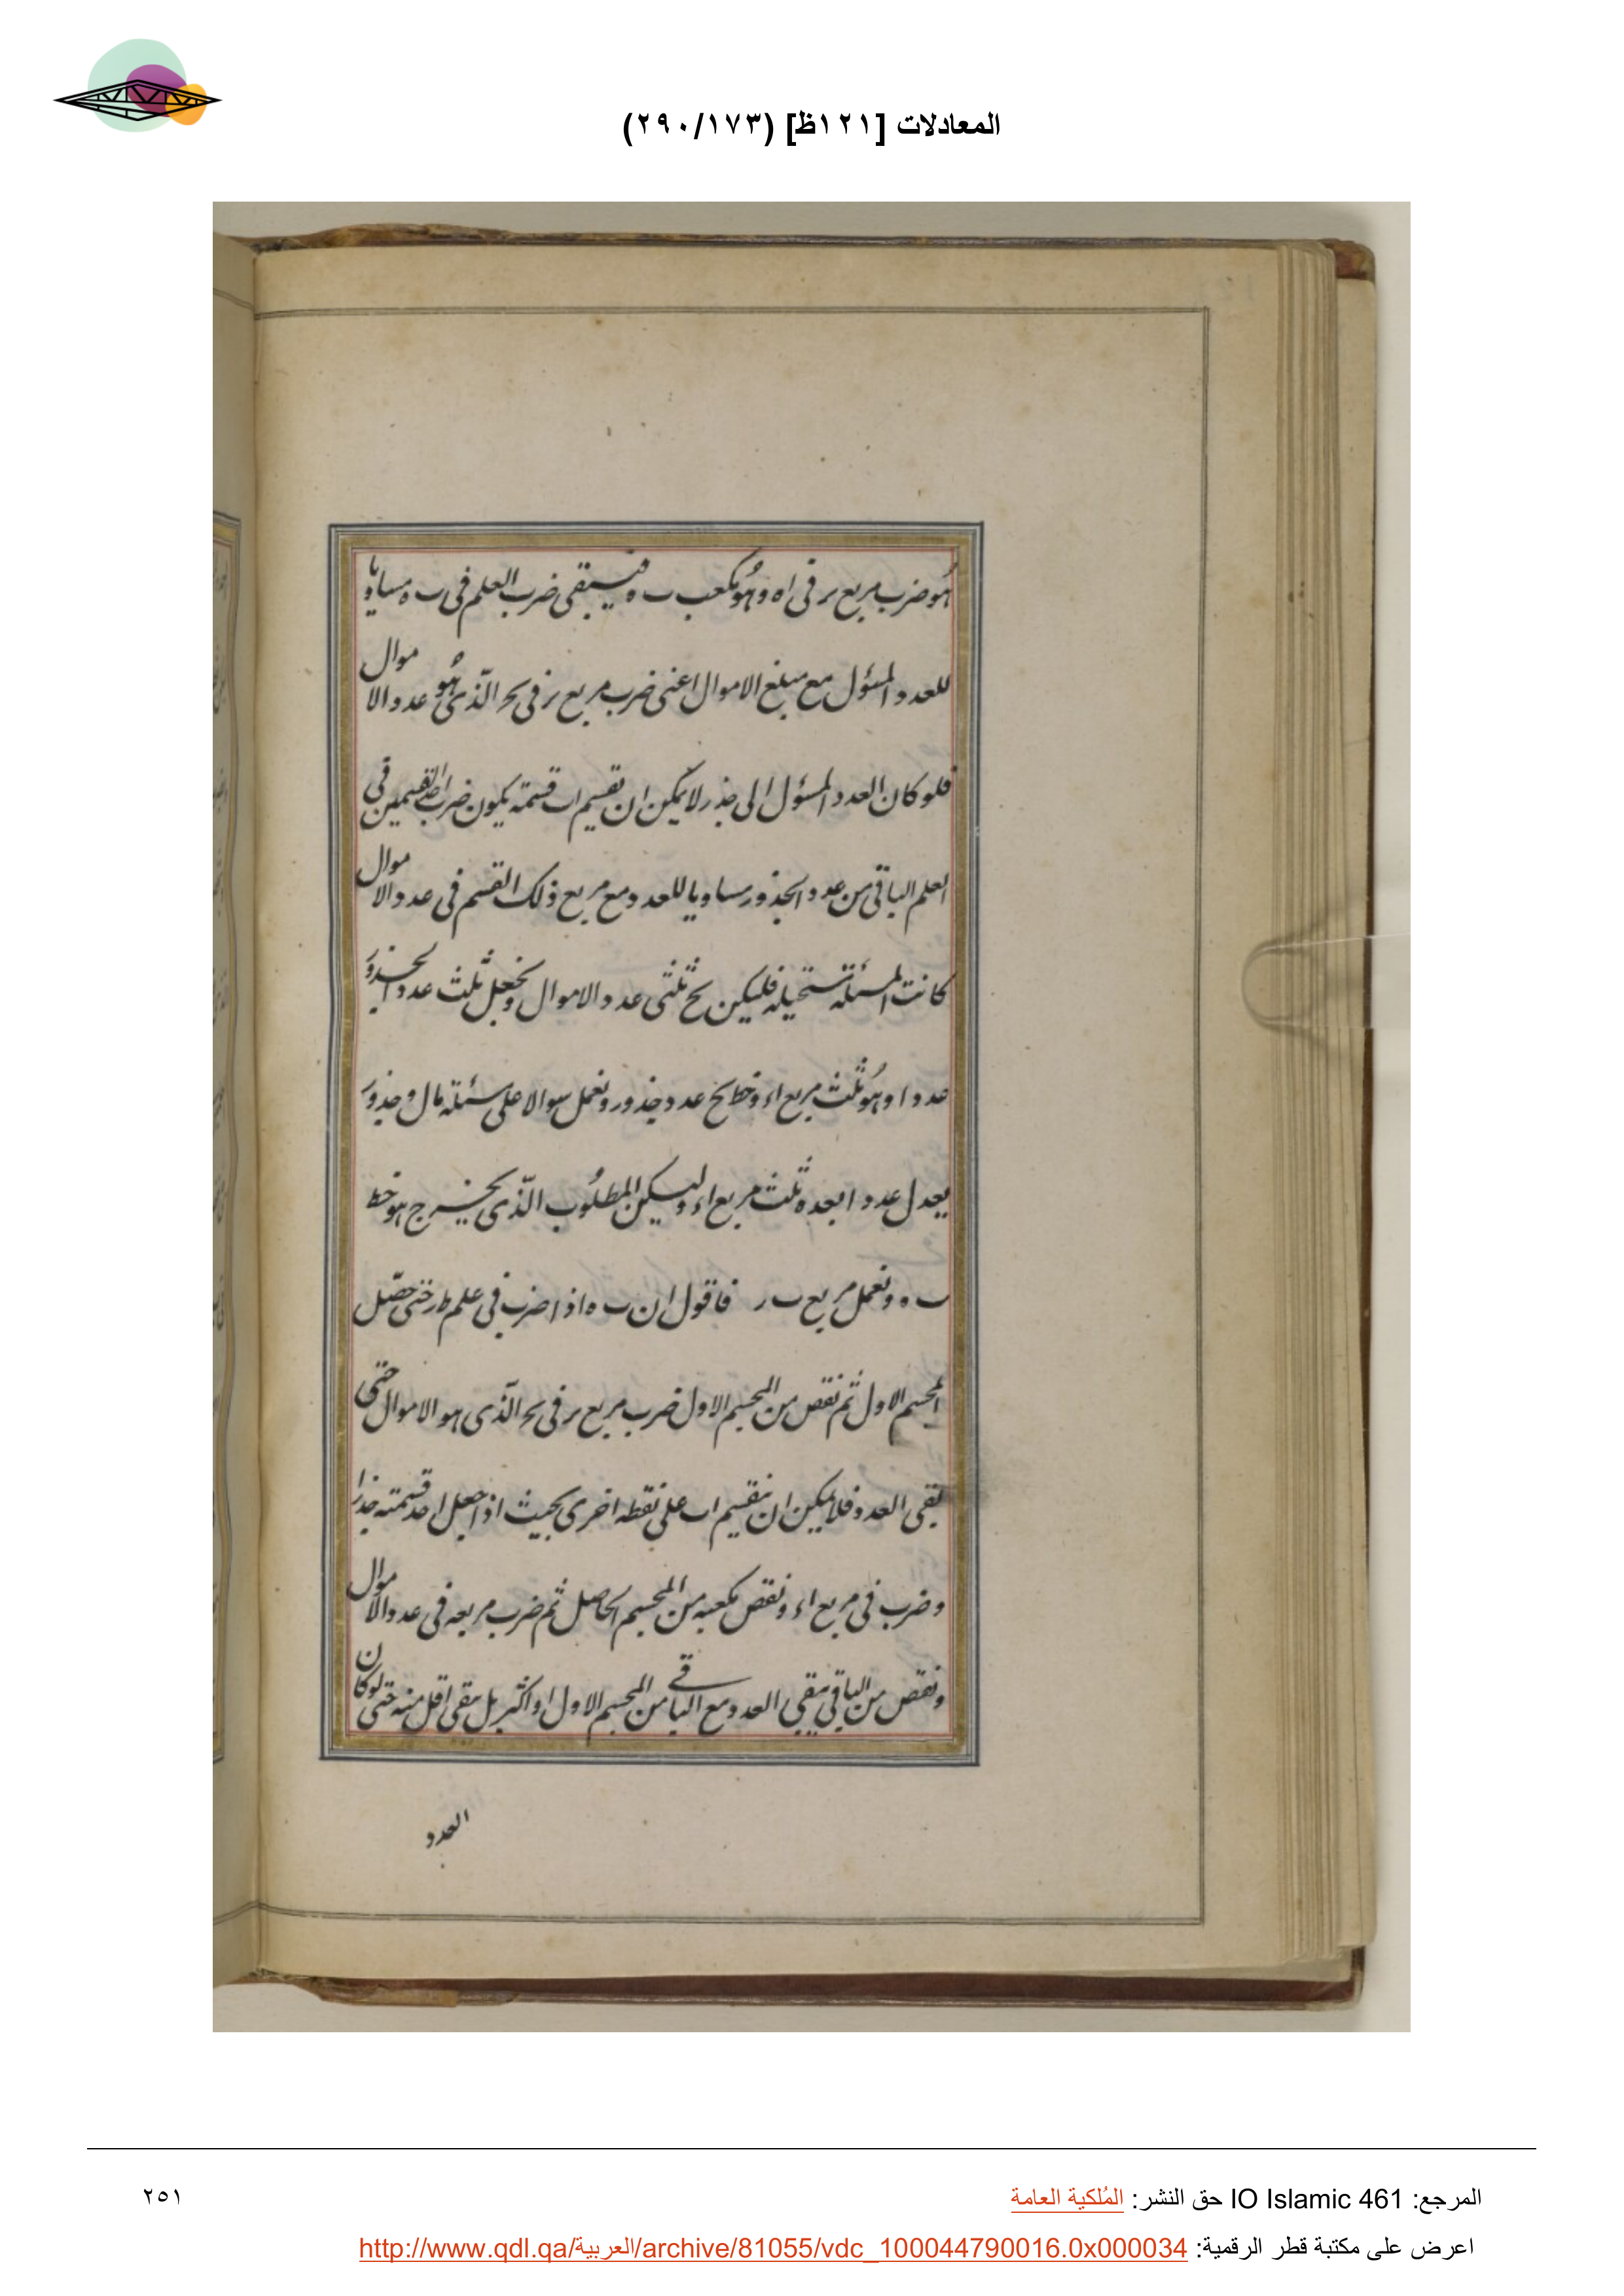 المعادلات [١٢١ظ] (٢٩٠/١٧٣)
هو ضرب مربع ىر فى اه وهو مكعب ىه فيبقى ضرب العلم فى ىه مساويا
للعدد المسؤل مع مبلغ الاموال اعنى ضرب مربع ىر فى ىح الذى هو عدد الاموال
فلو كان العدد المسؤل الى جذر لا يمكن ان تقسيم اب قسمة يكون ضرب احد القسمين فى
العلم الباقى من عدد الجذور مساويا للعدد ومع مربع ذلك القسم فى عدد الاموال
كانت المسئلة مستحيلة فليكن ىح ثلثى عدد الاموال ونجعل ثلث عدد الجذور
عددا وهو ثلث مربع اء وخط ىح عدد جذور ونعمل سوالا على مسئلة مال وجذور
يعدل عددا بعده ثلث مربع اء وليكن المطلوب الذى يخرج هو خط
ىه ونعمل مربع ىر فاقول ان ىه اذا ضرب فى علم طر حتى حصل
المجسم الاول ثم نقص من المجسم الاول ضرب مربع ىر فى ىح الذى هو الاموال حتى
بقى العدد فلا يمكن ان ينقسم اب على نقطه اخرى بحيث اذا جعل احد قسمته جذرا
وضرب فى مربع اء ونقص مكعبه من المجسم الحاصل ثم ضرب مربعه فى عدد الاموال
ونقص من الباقى يبقى العدد مع الباقى من المجسم الاول او اكثر بل يبقى اقل منه حتى لو كان
العدد
المرجع: IO Islamic 461 حق النشر: المُلكية العامة
٢٥١
اعرض على مكتبة قطر الرقمية: http://www.qdl.qa/العربية/archive/81055/vdc_100044790016.0x000034